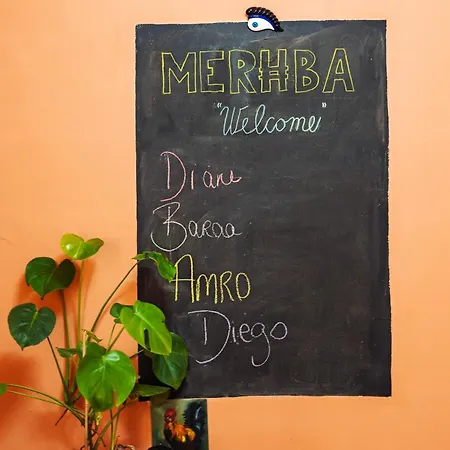 MERĦBA
"Welcome"
Diane
Baraa
AMRO
Diego